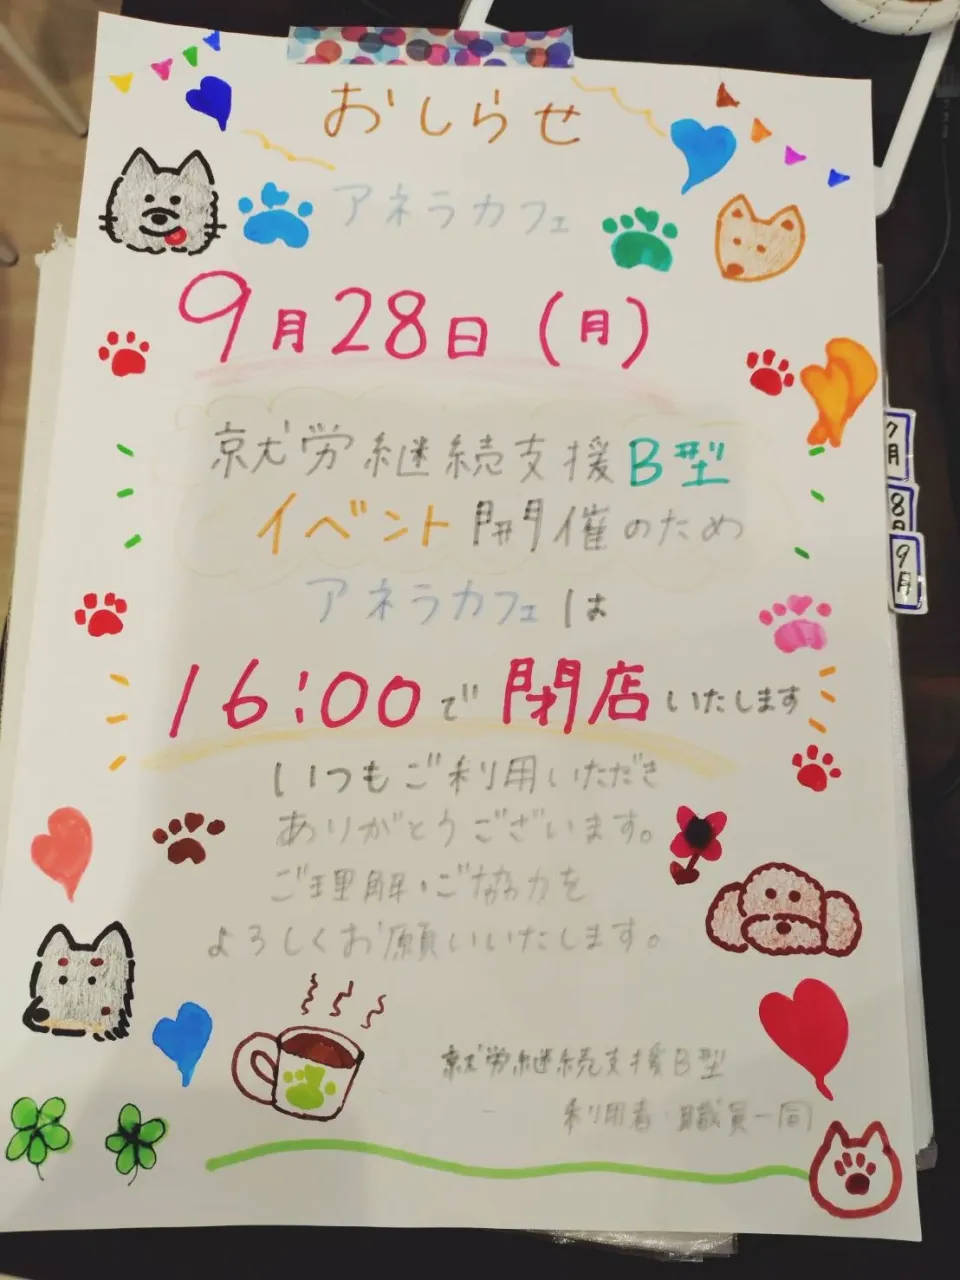 おしらせ
アネラカフェ
9月28日(月)
就労継続支援B型
イベント開催のため
アネラカフェは
16:00で閉店いたします
いつもご利用いただき
ありがとうございます。
ご理解・ご協力を
よろしくお願いいたします。
就労継続支援B型
利用者・職員一同
7月
8月
9月